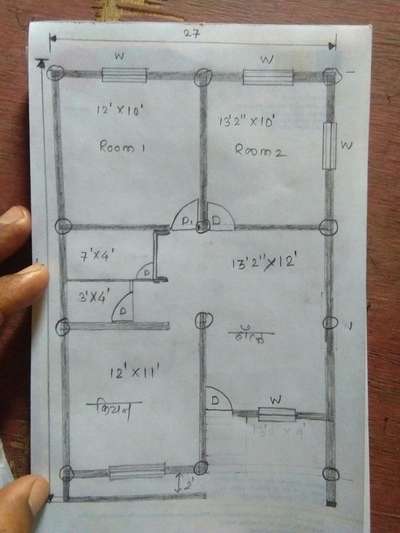 27
W
W
12' × 10'
Room 1
13'2" × 10'
Room 2
W
D1
D1
7' × 4'
D
13'2" × 12'
3' × 4'
D
हॉल
12' × 11'
किचन
D
W
2'